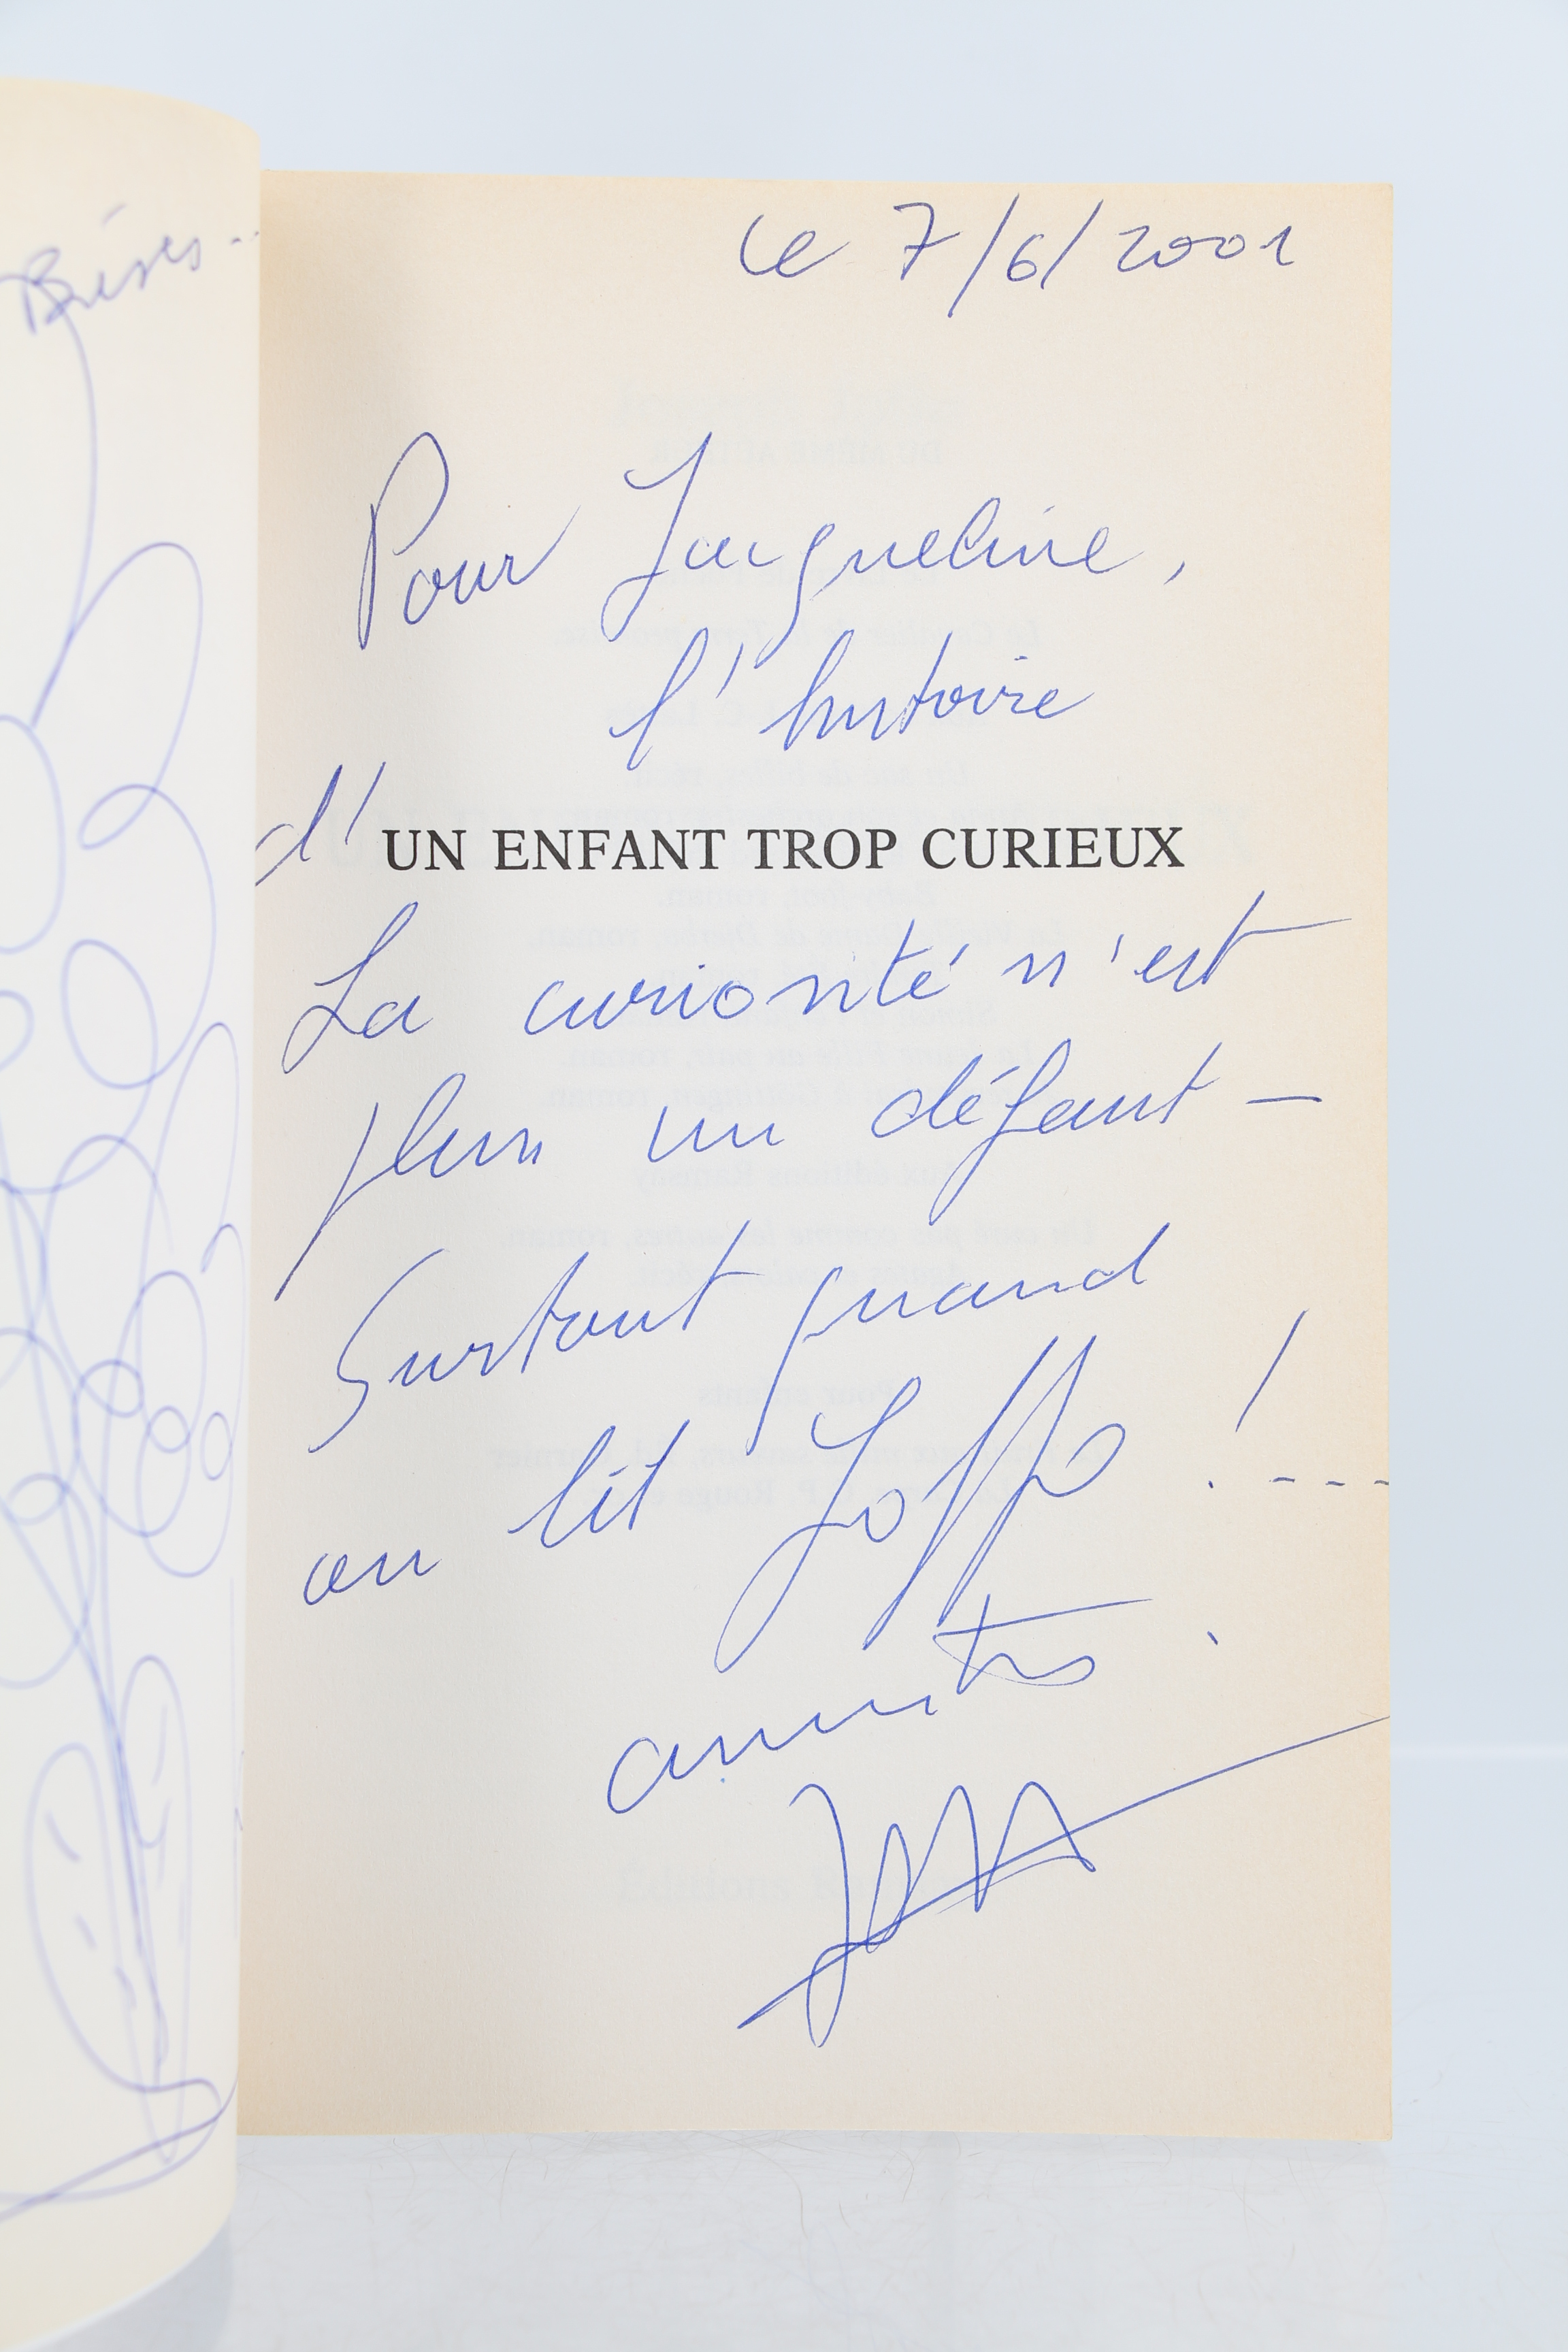 Bises..
le 7/6/2001
Pour Jacqueline,
l'histoire
d'UN ENFANT TROP CURIEUX
La curiosité n'est
plus un défaut —
Surtout quand
on lit Joffo !....
amitiés